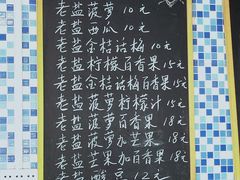 老盐菠萝 10元
老盐西瓜 10元
老盐金桔话梅 10元
老盐柠檬百香果 15元
老盐金桔话梅百香果 15元
老盐菠萝柠檬汁 15元
老盐菠萝百香果 18元
老盐菠萝加芒果 18元
老盐芒果加百香果 18元
老盐酸豆 12元